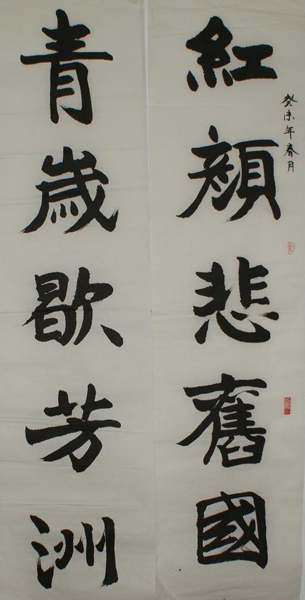 紅顏悲舊國
癸未年春月
青歲歇芳洲